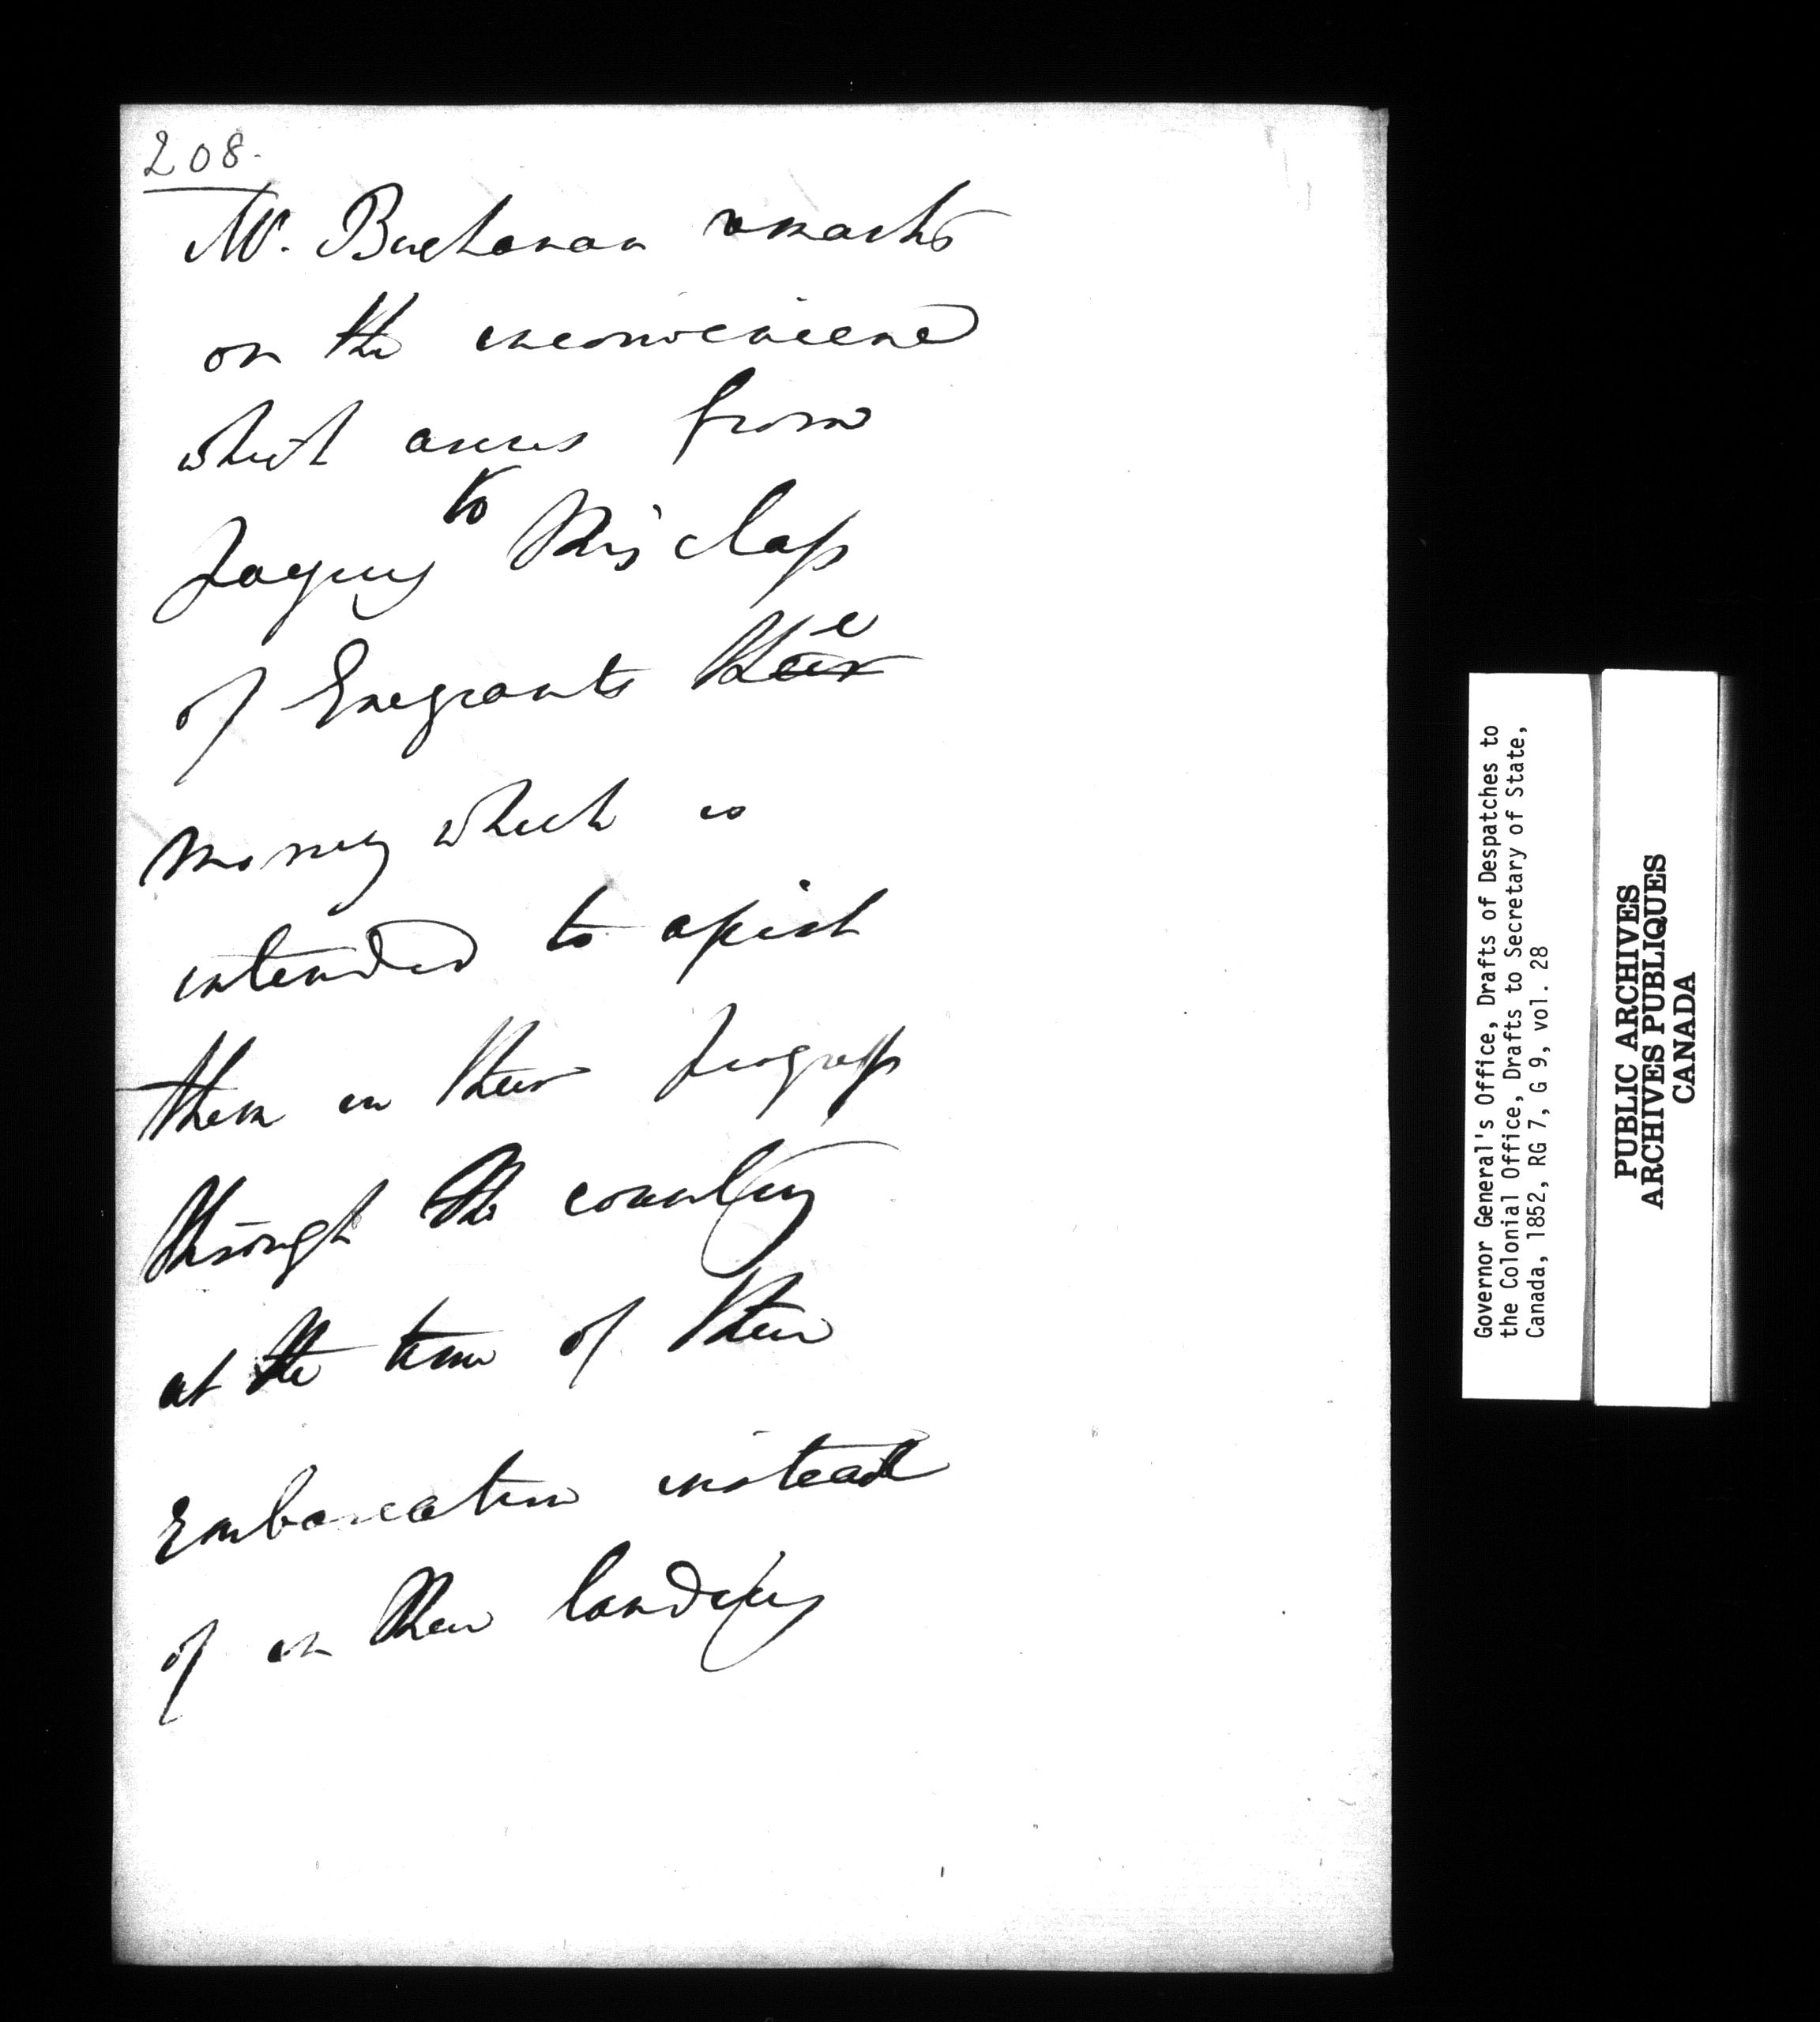 208.
Mr. Buchanan remarks
on the inconvenience
which arises from
paying to this class
of Emigrants their e
money which is
intended to assist
them in their progress
through the country
at the time of their
Embarcation instead
of on their landing
Governor General's Office, Drafts of Despatches to
the Colonial Office, Drafts to Secretary of State,
Canada, 1852, RG 7, G 9, vol. 28
PUBLIC ARCHIVES
ARCHIVES PUBLIQUES
CANADA